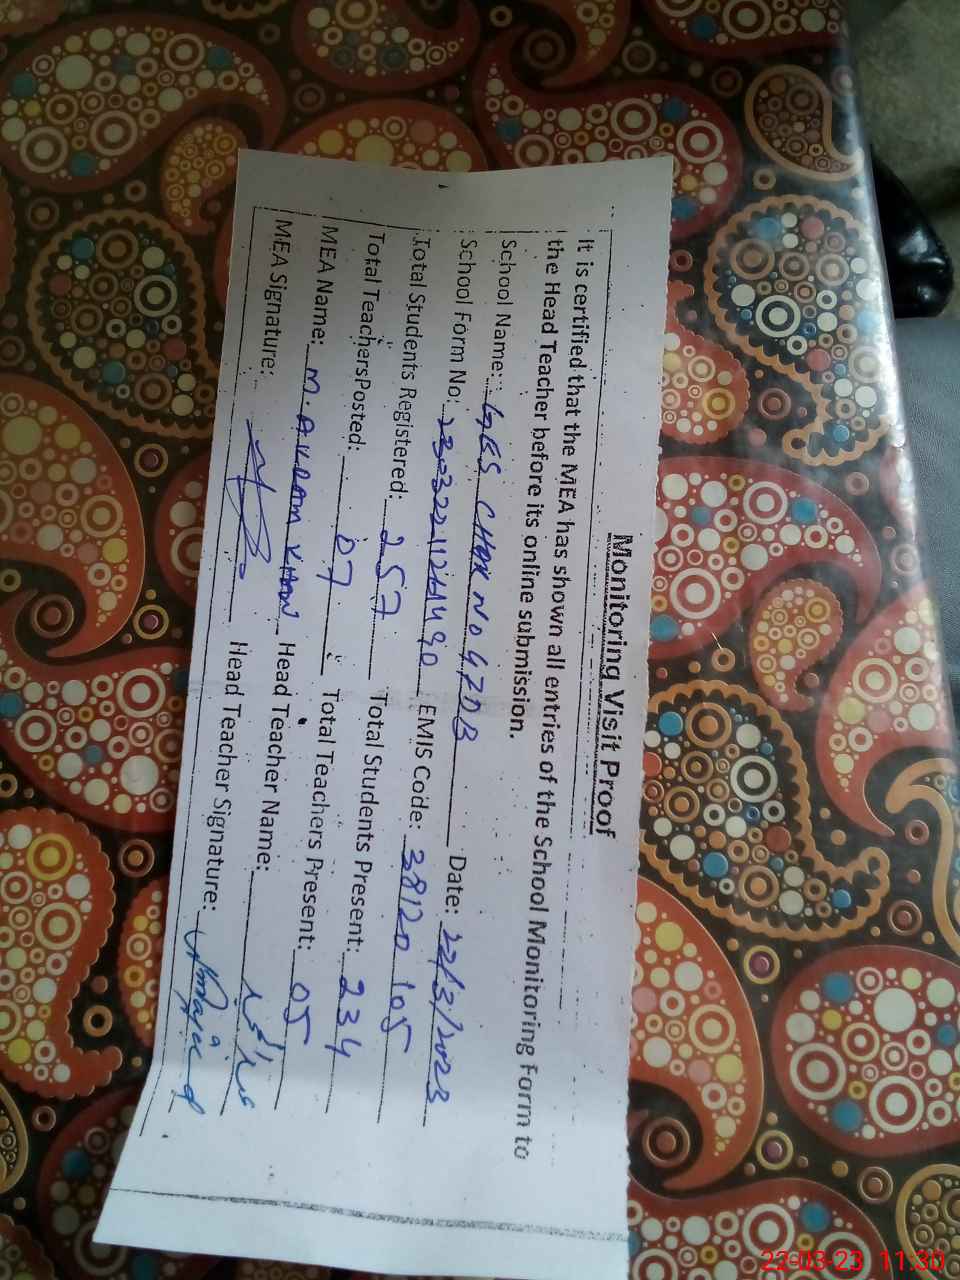 Monitoring Visit Proof
It is certified that the MEA has shown all entries of the School Monitoring Form to
the Head Teacher before its online submission.
School Name: GES CHAK NO 47DB Date: 22/3/2023
School Form No: EMIS Code: 38120105
Total Students Registered: 257 Total Students Present: 234
Total Teachers Posted: 07 Total Teachers Present: 05
MEA Name: M. AKRAM KHAN Head Teacher Name:
MEA Signature: Head Teacher Signature:
22-03-23 11:30